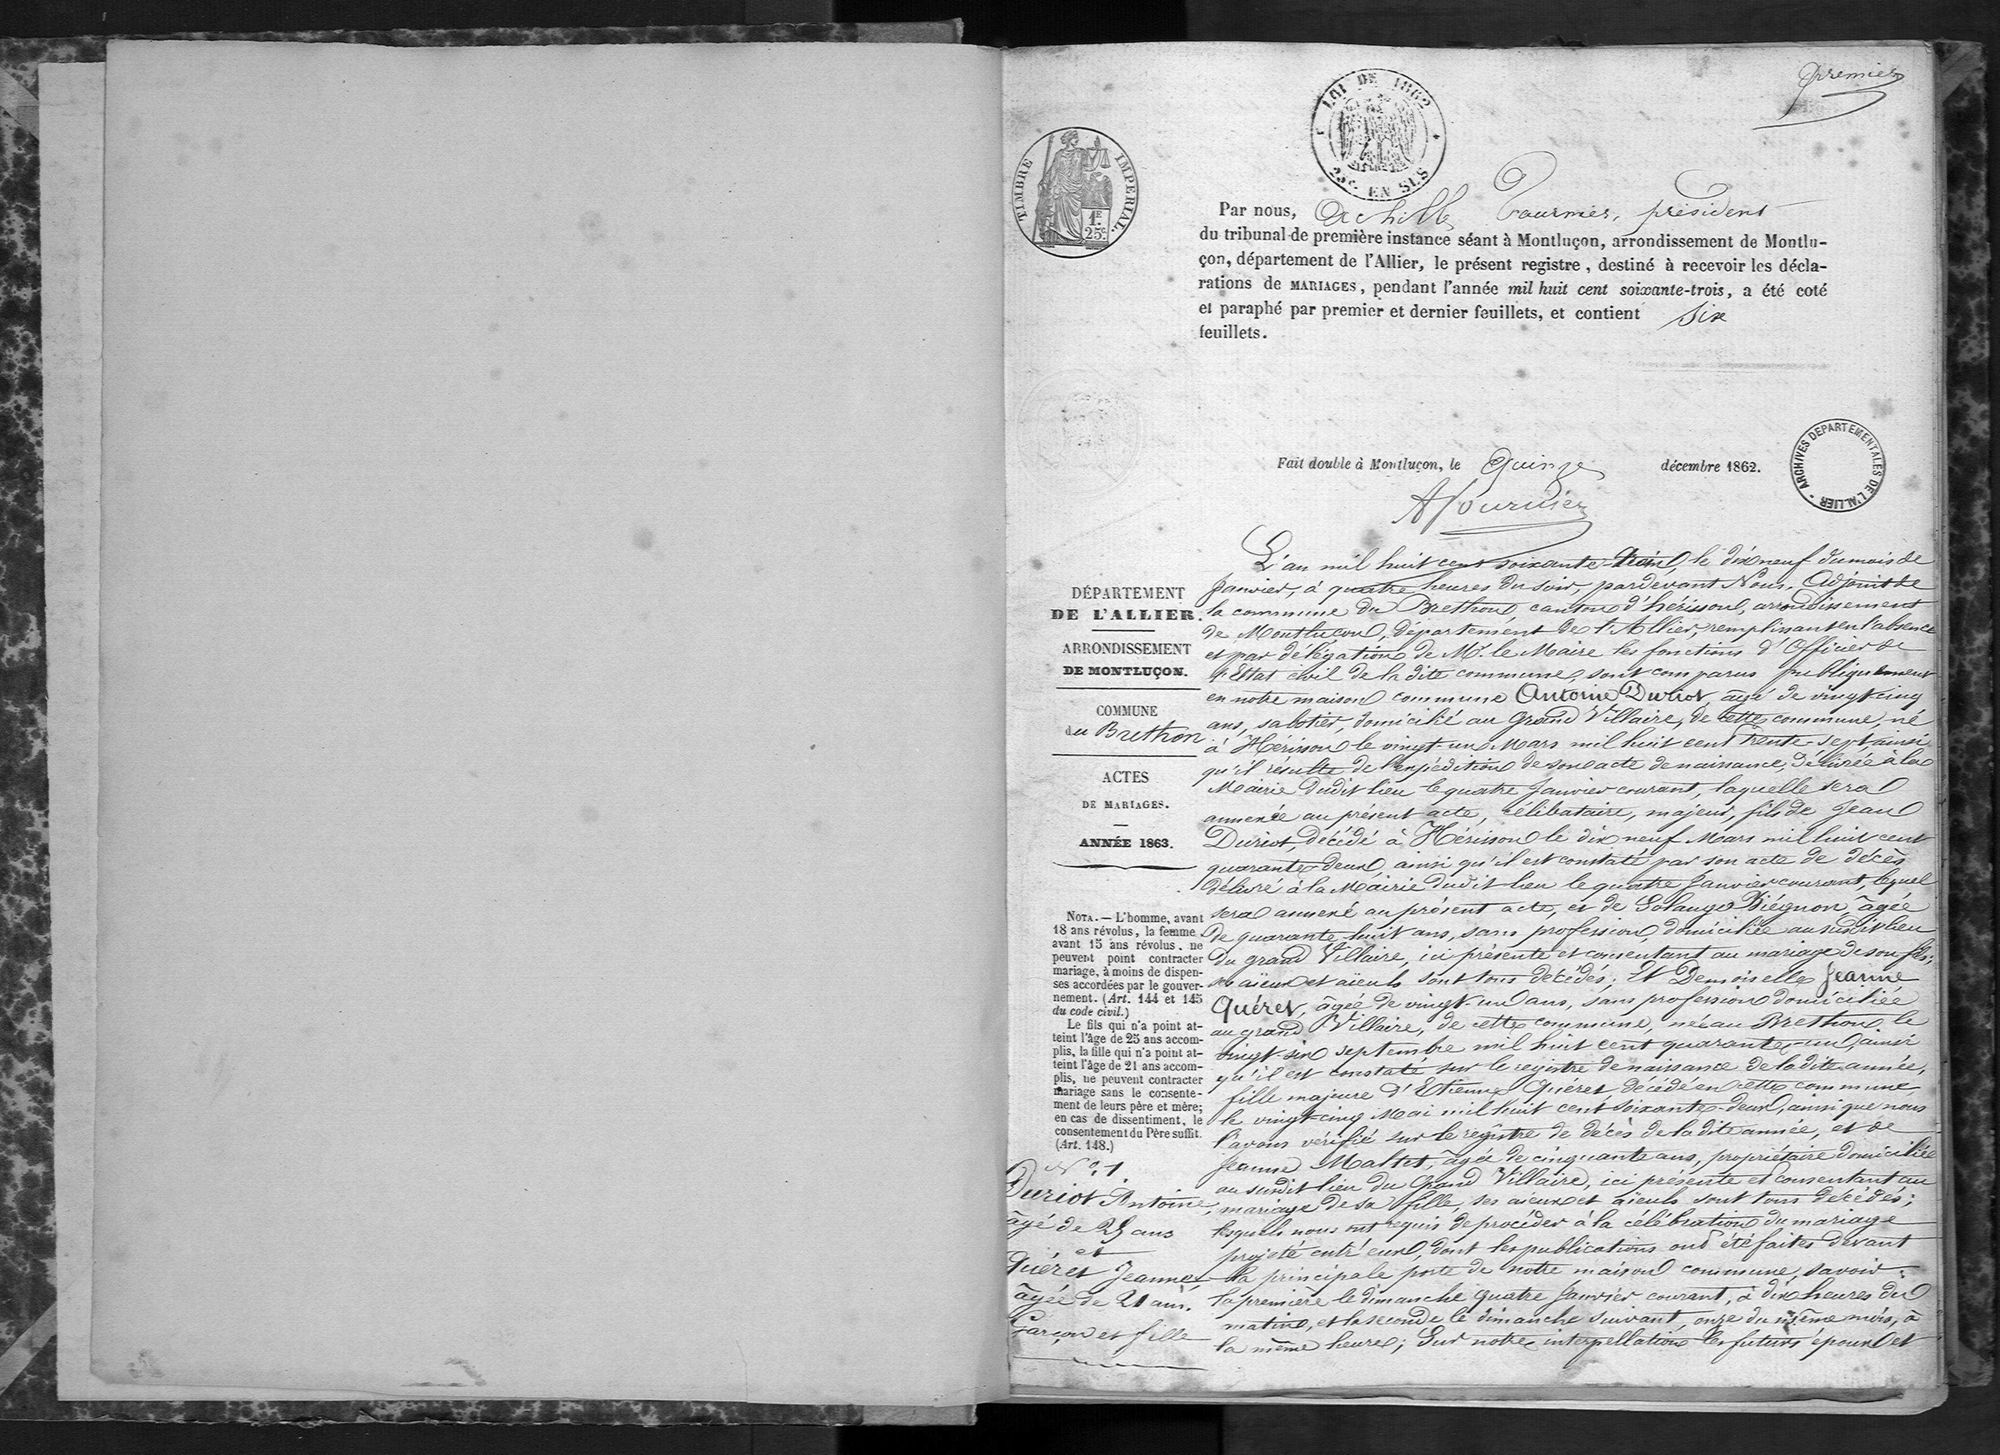 premier
LOI DE 1862
25c. EN SUS
TIMBRE IMPÉRIAL
1F.
25c.
Par nous, Achille Fournier, président
du tribunal de première instance séant à Montluçon, arrondissement de Montlu-
çon, département de l'Allier, le présent registre, destiné à recevoir les décla-
rations de MARIAGES, pendant l'année mil huit cent soixante-trois, a été coté
et paraphé par premier et dernier feuillets, et contient six
feuillets.
Fait double à Montluçon, le Quinze décembre 1862.
ARCHIVES DÉPARTEMENTALES DE L'ALLIER
AFournier
DÉPARTEMENT
DE L'ALLIER.
ARRONDISSEMENT
DE MONTLUÇON.
COMMUNE
du Brethon
ACTES
DE MARIAGES.
ANNÉE 1863.
NOTA. — L'homme, avant
18 ans révolus, la femme
avant 15 ans révolus, ne
peuvent point contracter
mariage, à moins de dispen-
ses accordées par le gouver-
nement. (Art. 144 et 145
du code civil.)
Le fils qui n'a point at-
teint l'âge de 25 ans accom-
plis, la fille qui n'a point at-
teint l'âge de 21 ans accom-
plis, ne peuvent contracter
mariage sans le consente-
ment de leurs père et mère;
en cas de dissentiment, le
consentement du Père suffit.
(Art. 148.)
N° 1.
Duriot Antoine
âgé de 25 ans
et
Quéret Jeanne
âgée de 21 ans.
Garçon et fille
L'an mil huit cent soixante-trois, le dix neuf du mois de
Janvier, à quatre heures du soir, pardevant Nous, Adjoint de
la commune du Brethon, canton d'hérisson, arrondissement
de Montluçon, département de l'Allier, remplissant en l'absence
et par délégation de Mr. le Maire les fonctions d'Officier de
l'Etat civil de la dite commune, sont comparus publiquement
en notre maison commune Antoine Duriot, âgé de vingt cinq
ans, sabotier, domicilié au Grand Villaire, de cette commune, né
à Hérisson le vingt-un Mars mil huit cent trente-sept ainsi
qu'il résulte de l'expédition de son acte de naissance, délivrée à la
Mairie dudit lieu le quatre Janvier courant, laquelle sera
annexée au présent acte, célibataire, majeur, fils de Jean
Duriot, décédé à Hérisson le dix neuf Mars mil huit cent
quarante-deux, ainsi qu'il est constaté par son acte de décès
délivré à la Mairie dudit lieu le quatre Janvier courant, lequel
sera annexé au présent acte, et de Solange âgée
de quarante-huit ans, sans profession, domiciliée au susdit lieu
du grand Villaire, ici présente et consentant au mariage de son fils;
ses aïeux et aïeuls sont tous décédés; Et Demoiselle Jeanne
Quéret, âgée de vingt-un ans, sans profession domiciliée
au grand Villaire, de cette commune, née au Brethon le
vingt-six septembre mil huit cent quarante-un ainsi
qu'il est constaté sur le registre de naissance de la dite année,
fille majeure d'Etienne Quéret décédé en cette commune
le vingt-cinq Mai mil huit cent soixante-deux, ainsi que nous
l'avons vérifié sur le registre de décès de la dite année, et de
Jeanne Maltet, âgée de cinquante ans, propriétaire domiciliée
au susdit lieu du Grand Villaire, ici présente et consentant au
mariage de sa fille, ses aïeux et aïeuls sont tous décédés;
lesquels nous ont requis de procéder à la célébration du mariage
projeté entr'eux, dont les publications ont été faites devant
la principale porte de notre maison commune, savoir:
la première le dimanche quatre Janvier courant, à dix heures du
matin, et la seconde le dimanche suivant, onze du même mois, à
la même heure; Sur notre interpellation les futurs époux et